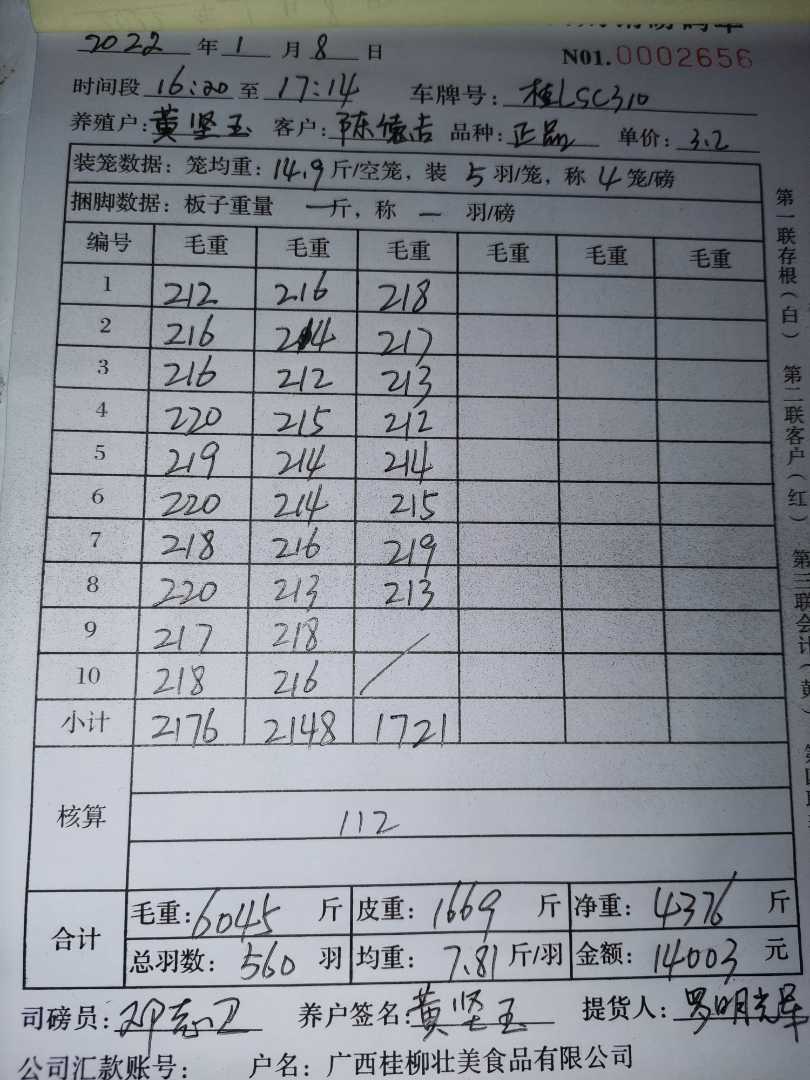 2022 年 1 月 8 日
N01. 0002656
时间段 16:20 至 17:14 车牌号: 桂LSC310
养殖户: 黄坚玉 客户: 陈德吉 品种: 正品 单价: 3.2
装笼数据: 笼均重: 14.9 斤/空笼, 装 5 羽/笼, 称 4 笼/磅
捆脚数据: 板子重量 一斤, 称 一 羽/磅
编号 毛重 毛重 毛重 毛重 毛重 毛重
1 212 216 218
2 216 214 217
3 216 212 213
4 220 215 212
5 219 214 214
6 220 214 215
7 218 216 219
8 220 213 213
9 217 218
10 218 216
小计 2176 2148 1721
核算 112
合计 毛重: 6045 斤 皮重: 1669 斤 净重: 4376 斤
总羽数: 560 羽 均重: 7.81 斤/羽 金额: 14003 元
司磅员: 邓志卫 养户签名: 黄坚玉 提货人: 罗明光
公司汇款账号: 户名: 广西桂柳壮美食品有限公司
第一联存根(白) 第二联客户(红) 第三联会计(黄)